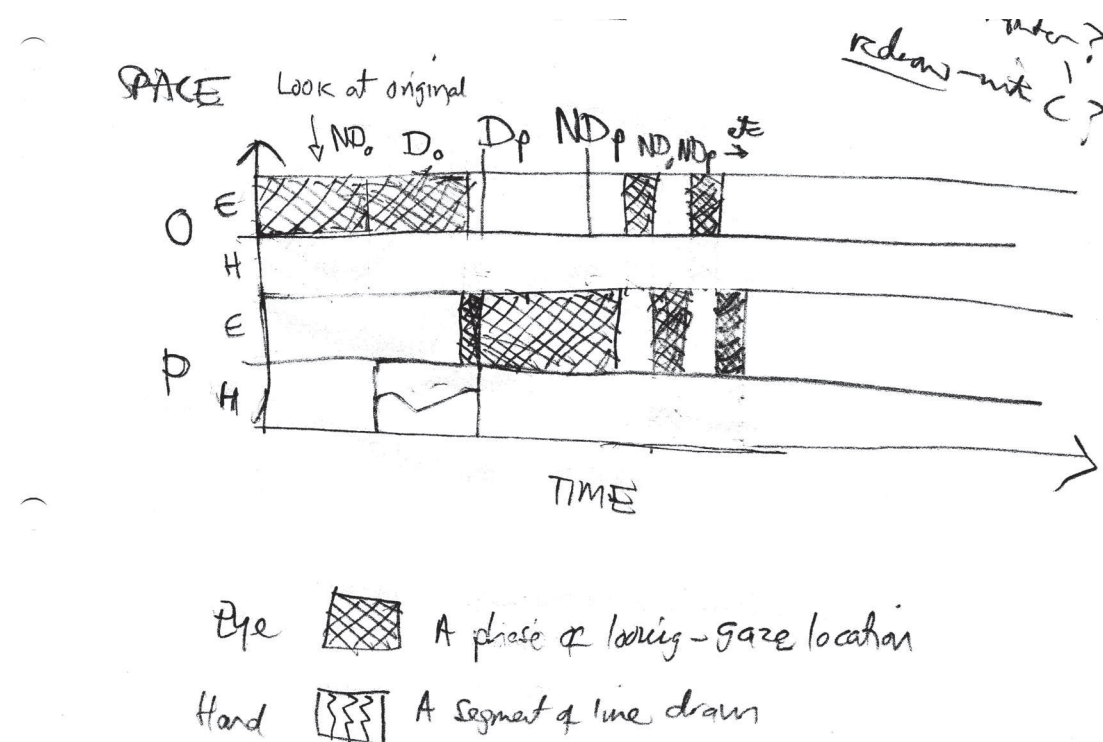 redraw - with
SPACE Look at original
ND₀ D₀ Dp NDp ND₀ NDp etc
O E
H
P E
H
TIME
Eye A phase of looking - gaze location
Hand A segment of line drawn